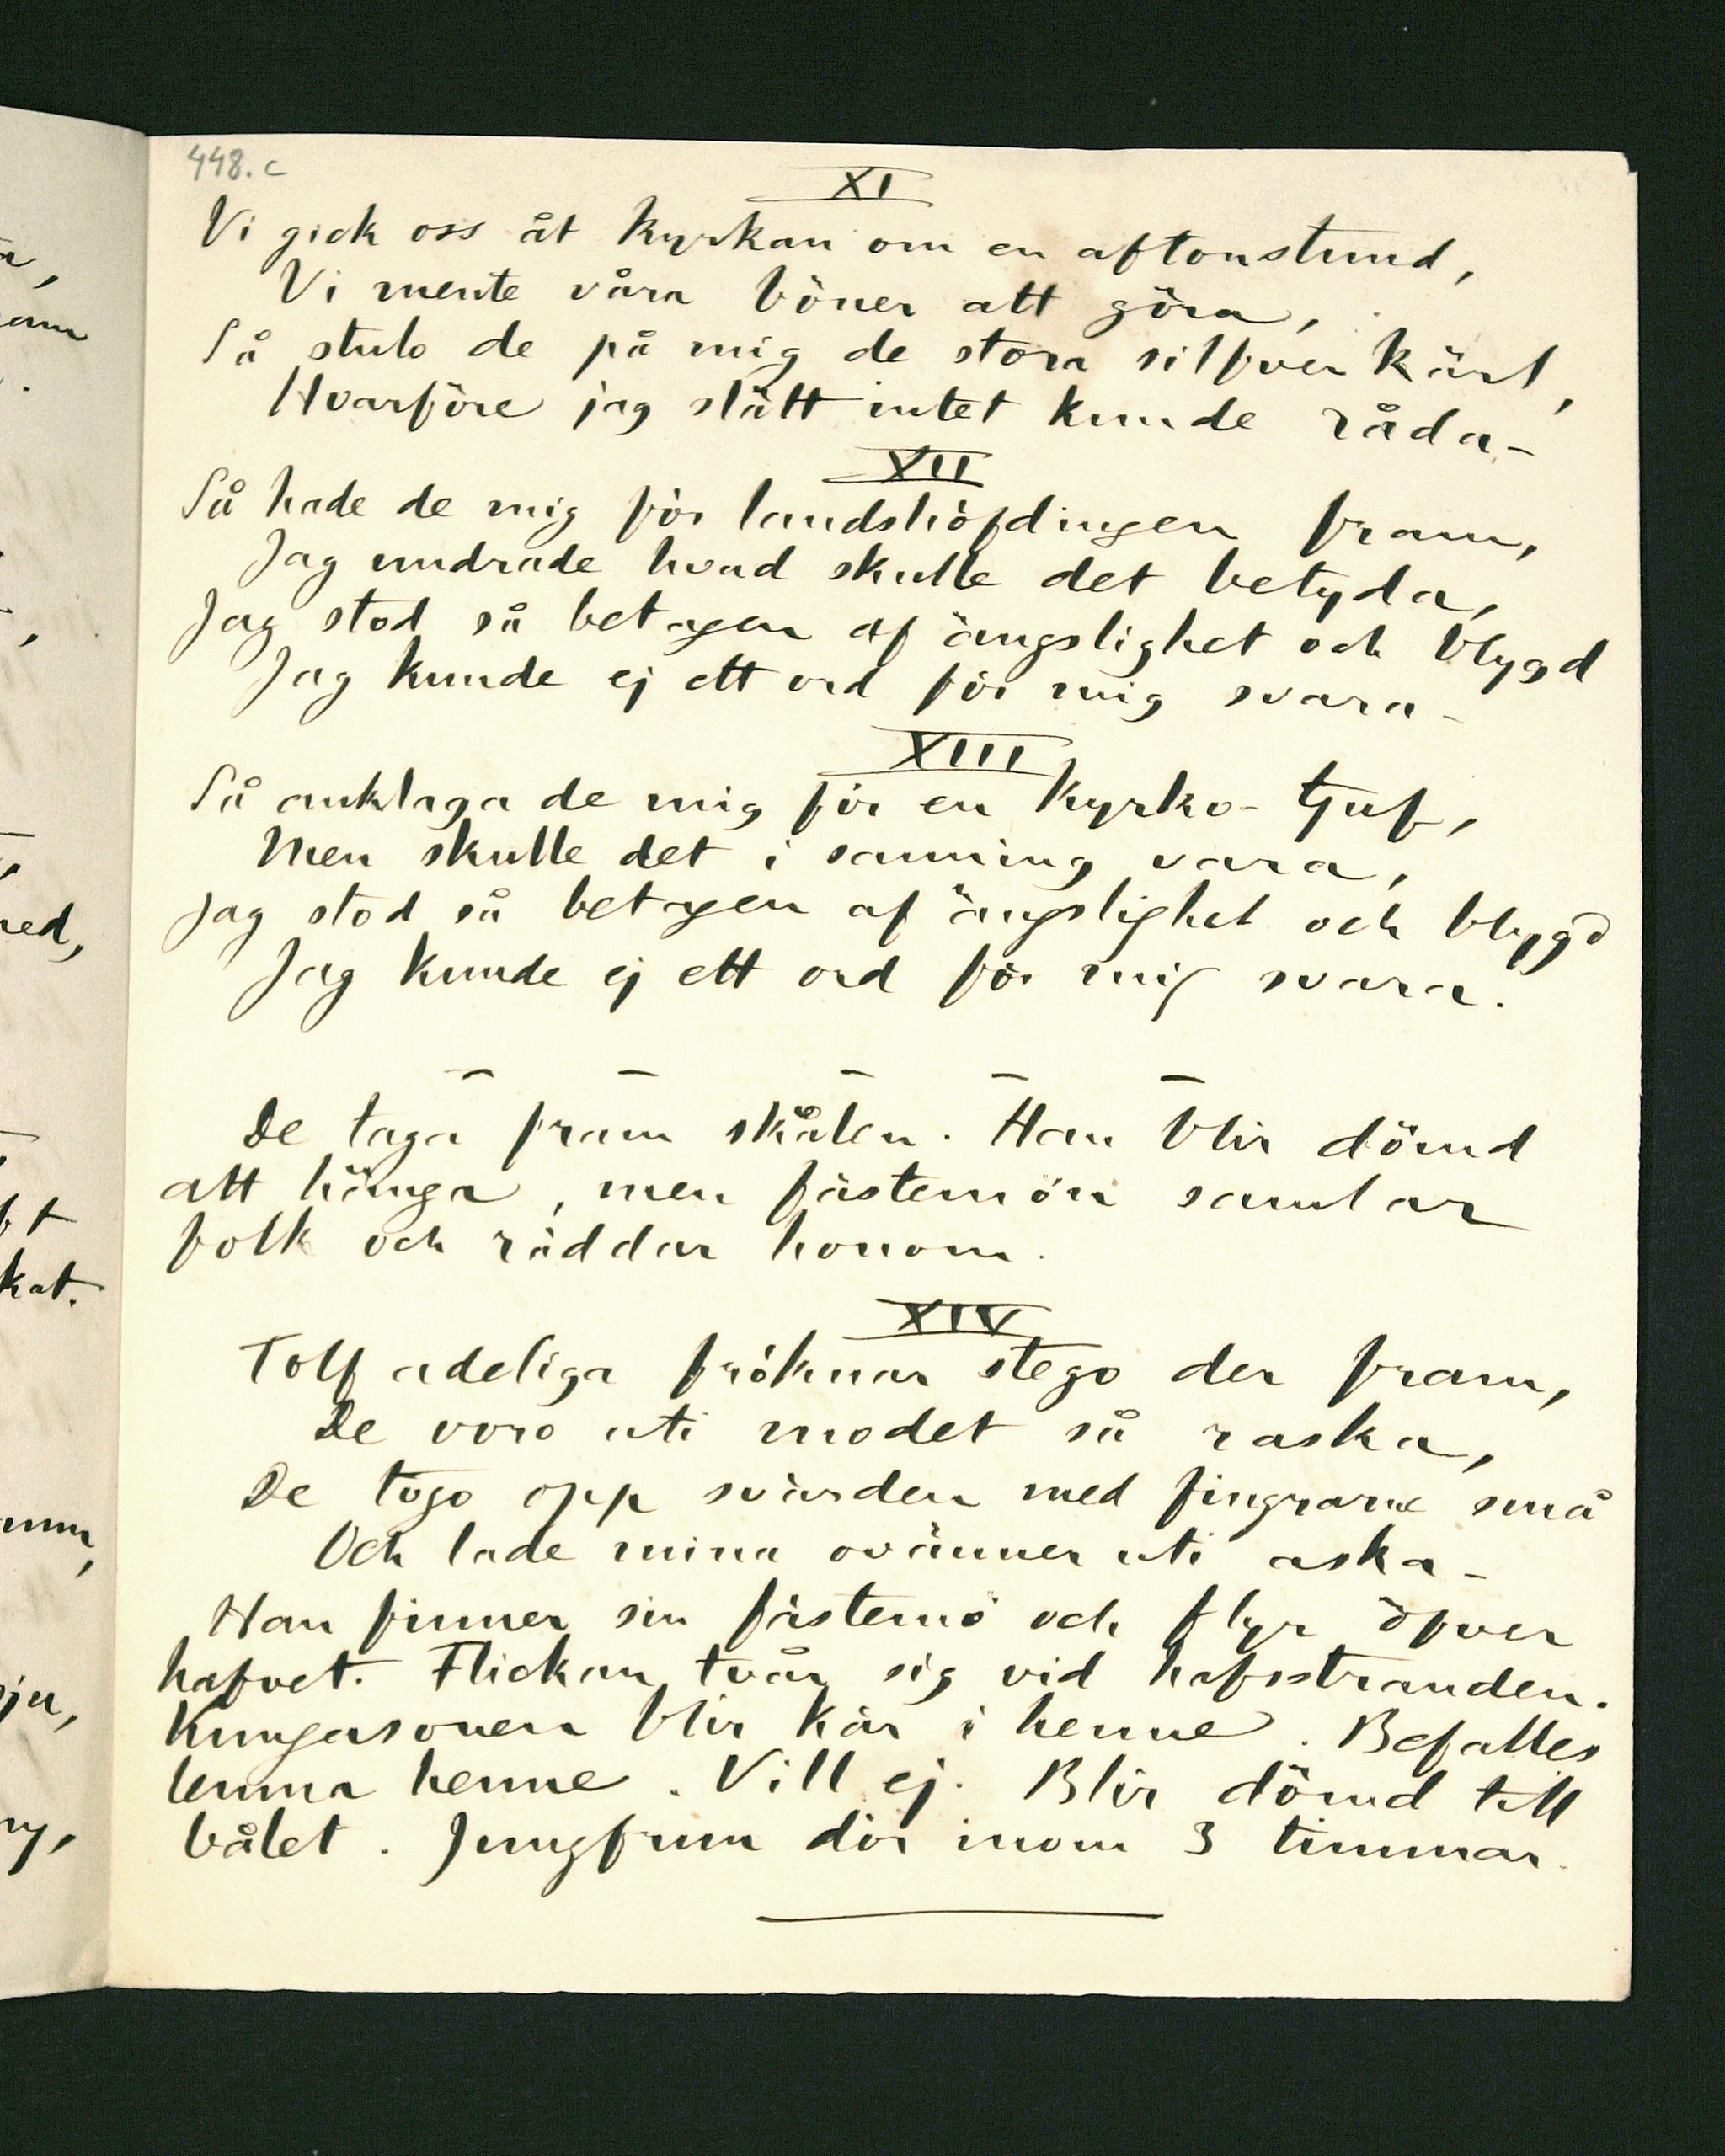 448.c
XI
Vi gick oss åt kyrkan om en aftonstund,
Vi mente våra böner att göra,
Så stulo de på mig de stora silfver kärl,
Hvarföre jag slätt intet kunde råda-
XII
Så hade de mig för landshöfdingen fram,
Jag undrade hvad skulle det betyda,
Jag stod så betagen af ängslighet och blygd
Jag kunde ej ett ord för mig svara-
XIII
Så anklaga de mig för en kyrko-tjuf,
Men skulle det i sanning vara,
Jag stod så betagen af ängslighet och blygd
Jag kunde ej ett ord för mig svara.
– – – – –
De taga fram skålen. Han blir dömd
att hänga, men fästemön samlar
folk och räddar honom.
XIV
Tolf adeliga fröknar stego der fram,
De voro uti modet så raska,
De togo opp svärden med fingrarne små
Och lade mina ovänner uti aska-
Han finner sin fästemö och flyr öfver
hafvet. Flickan tvår sig vid hafsstranden.
Kungasonen blir kär i henne. Befalles
lemna henne. Vill ej. Blir dömd till
bålet. Jungfrun dör inom 3 timmar.